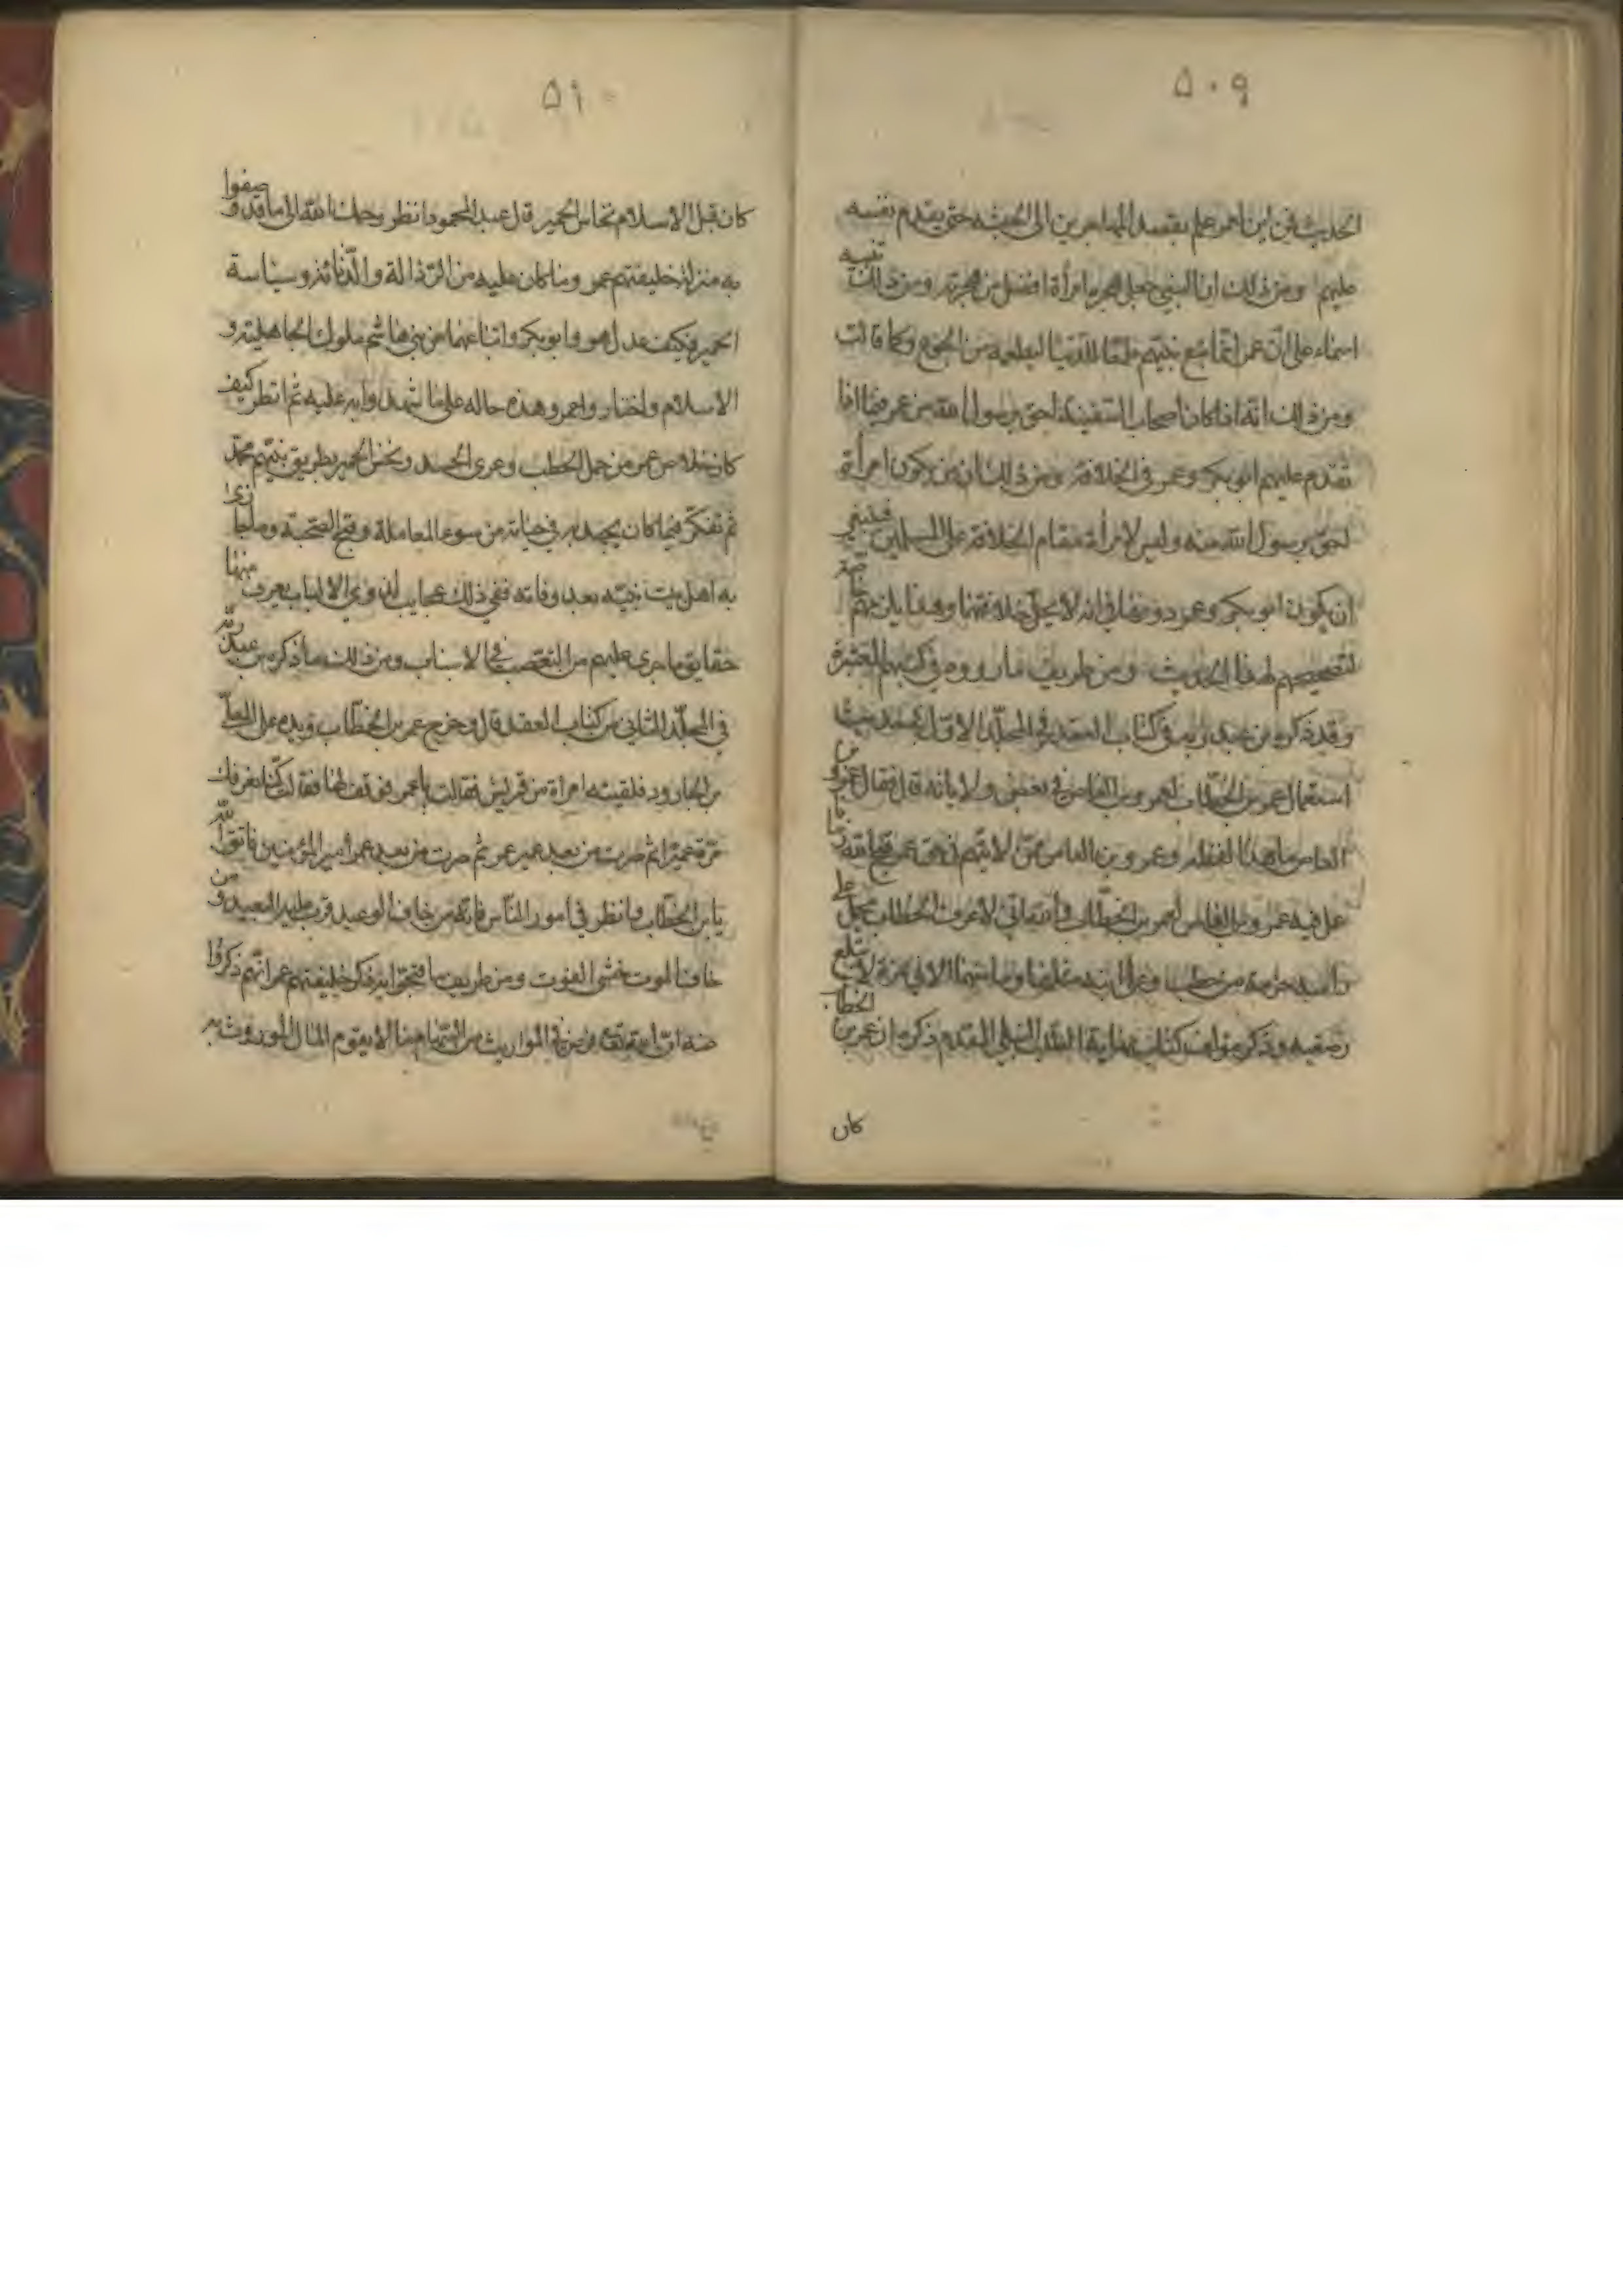 ٥٠٩
الحديث في اين لعمر علم بقصد المهاجرين الى الحبشة حتى يقدم نفسه
عليهم ومن ذلك ان النبي جعل هجرة امرأة افضل من هجرته ومن ذلك
اسماء على ان عمر انما تبع نبيهم طمعا للدنيا ليطعمه من الجوع وكما قالت
ومن ذلك انه اذا كان اصحاب السفينة احق برسول الله من عمر فلماذا
تقدم عليهم ابو بكر وعمر في الخلافة ومن ذلك ان من يكون امرأة
احق برسول الله منه وليس لامرأة مقام الخلافة على المسلمين فينبغي
ان يكون ابو بكر وعمر دونها في انه لا يحل خلافتهما وهذا يلزمهم
لتصحيحهم لهذا الحديث ومن طريف ما رووه في كتبهم المعتبرة
وقد ذكره بن عبد ربه في كتاب العقد في المجلد الاول عند حديث
استعمال عمر بن الخطاب لعمرو بن العاص في بعض ولاياته قال فقال عمرو بن
العاص ما هذا لفظه وعمرو بن العاص ممن لا يتهم في حق عمر قبح الله زمانا
عمل فيه عمرو بن العاص لعمر بن الخطاب والله اني لاعرف الخطاب يحمل على
رأسه حزمة من حطب وعلى ابنه مثلها وما منهما الا في نمرة لا تبلغ
رضفيه وذكر مؤلف كتاب نهاية الطلب الحنبلي المقدم ذكره ان عمر بن الخطاب
كان
٥١٠
كان قبل الاسلام نخاس الحمير قال عبد المحمود انظر رحمك الله الى ما قد وصفوا
به منزلة خليفتهم عمر وما كان عليه من الرذالة والدناءة وسياسة
الحمير فكيف عدل هو وابو بكر واتباعهما عن بني هاشم ملوك الجاهلية و
الاسلام واختاروا عمر وهذه حاله على ما شهدوا به عليه ثم انظر كيف
كان خلاص عمر من حمل الحطب وعرى الجسد ونخس الحمير بطريق نبيهم محمد
ثم تفكر فيما كان يجهد به في حياته من سوء المعاملة وقبح الصحبة وما جازى
به اهل بيت نبيه بعد وفاته ففي ذلك عجايب لذوي الالباب يعرف منها
حقايق ما جرى عليهم من التعصب في الاسباب ومن ذلك ما ذكره بن عبد ربه
في المجلد الثاني من كتاب العقد قال وخرج عمر بن الخطاب ويده على المعلى
بن الجارود فلقيته امرأة من قريش فقالت يا عمر فوقف لها فقالت كنا نعرفك
مرة عميرا ثم صرت من بعد عمير عمر ثم صرت من بعد عمر امير المؤمنين فاتق الله
يا بن الخطاب وانظر في امور الناس فانه من خاف الوعيد قرب عليه البعيد ومن
خاف الموت خشى الفوت ومن طريف ما فتحوا به ذكر خليفتهم عمر انهم ذكروا
عنه انه